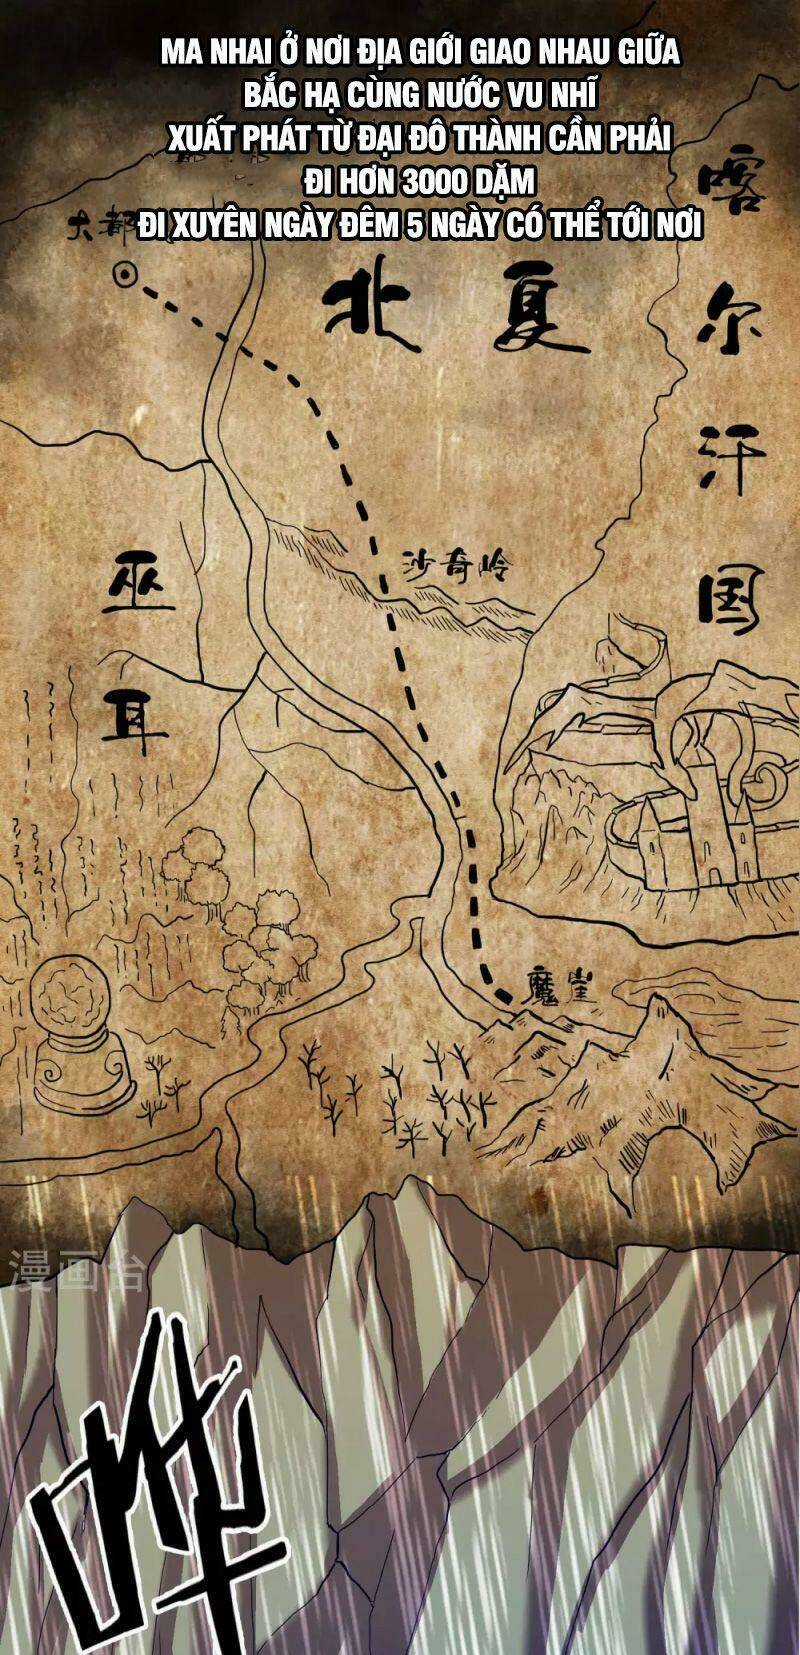 MA NHAI Ở NƠI ĐỊA GIỚI GIAO NHAU GIỮA
BẮC HẠ CÙNG NƯỚC VU NHĨ
XUẤT PHÁT TỪ ĐẠI ĐÔ THÀNH CẦN PHẢI
ĐI HƠN 3000 DẶM
ĐI XUYÊN NGÀY ĐÊM 5 NGÀY CÓ THỂ TỚI NƠI
大都
北夏
喀尔汗国
沙奇岭
巫耳
魔崖
漫画台
哗